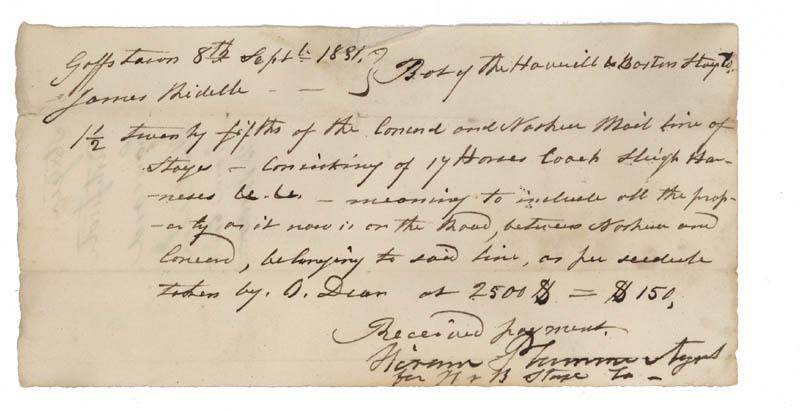 Goffstown 8th Septr. 1831.
James Riddle — — } Bot of the Haverill & Boston Stage Co.
1 1/2 twenty fifths of the Concord and Nashua Mail line of
Stages – Consisting of 17 Horses Coach Sleigh Har-
-neses &c. &c. – meaning to include all the prop-
-erty as it now is on the Road, between Nashua and
Concord, belonging to said line, as per scedule
taken by. O. Dean at 2500 $ = $ 150,
Received payment.
Hiram Plummer Agent
for H & B Stage Co –